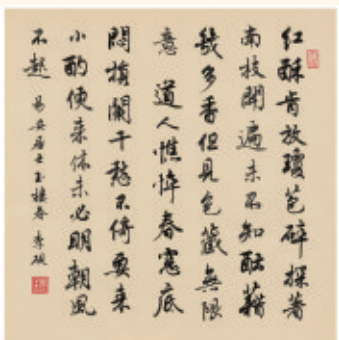 紅酥肯放瓊苞碎探著
南枝開遍未不知醖藉
幾多香但見包藏無限
意 道人憔悴春窓底
悶損闌干愁不倚要来
小酌便来休未必明朝風
不起 易安居士玉樓春 李